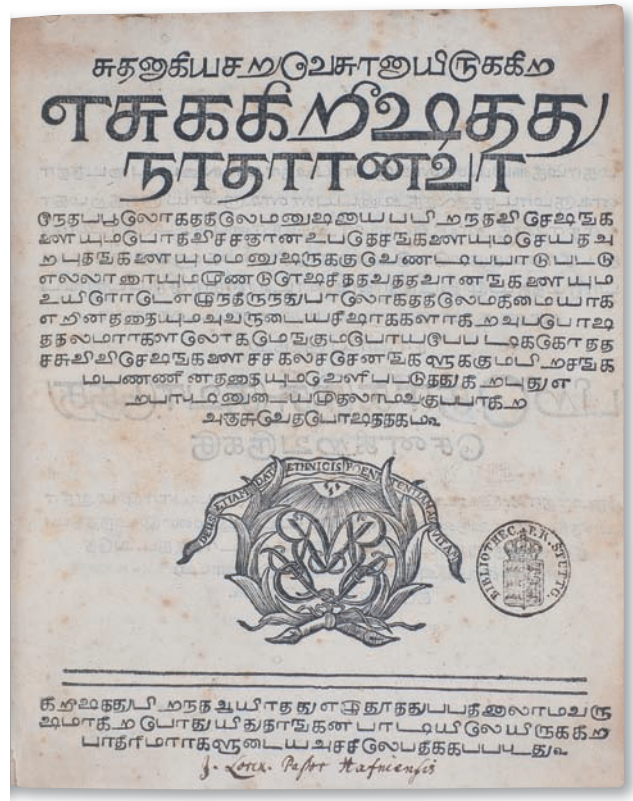 சுதனாகியசறுவேசுரனாயிருககிற
எசுககிறீஷதது
நாதாரானவா
இநதபபூலோகததிலேமனுஷனாயபபிறநதவிசேஷஙக
ளையுமபோதிவிசசஞானஉபதேசஙகளையுமசெயதஅ
றபுதஙகளையுமமனுஷருககுவேணடியபாடுபடடு
உயிரோடேஎழுநதிருநதுபாலோகததிலேமகிமையாக
எறினததையுமஅவருடையசீஷாகளாகிறஅபபோஷ
ததலமாராகளலோகமெஙகுமபோய
விசேஷஙகளை சகலசசேனஙகளுககுமபிறசஙக
மபணணினததையுமவெளிபபடுததுகிறபுதுஎ
றபாடினுடையமுதலாமவகுபபாகிற
அஞசுவேதபொஷததகம௳
DEUS ETIAM DAT ETHNICIS POENITENTIAM AD VITAM
BIBLIOTHEC. P.R. STUTTG.
கிறிஷததுபபிறநதஆயிரதது எழுநூததுபபதினாலாமவரு
ஷமாகிறபோதுயிதுதரஙகனபாடியிலேயிருககிற
பாதிரிமாராகளுடையஅசசிலேபதிககபபடடது௳
J. Lorck. Pastor Hafniensis